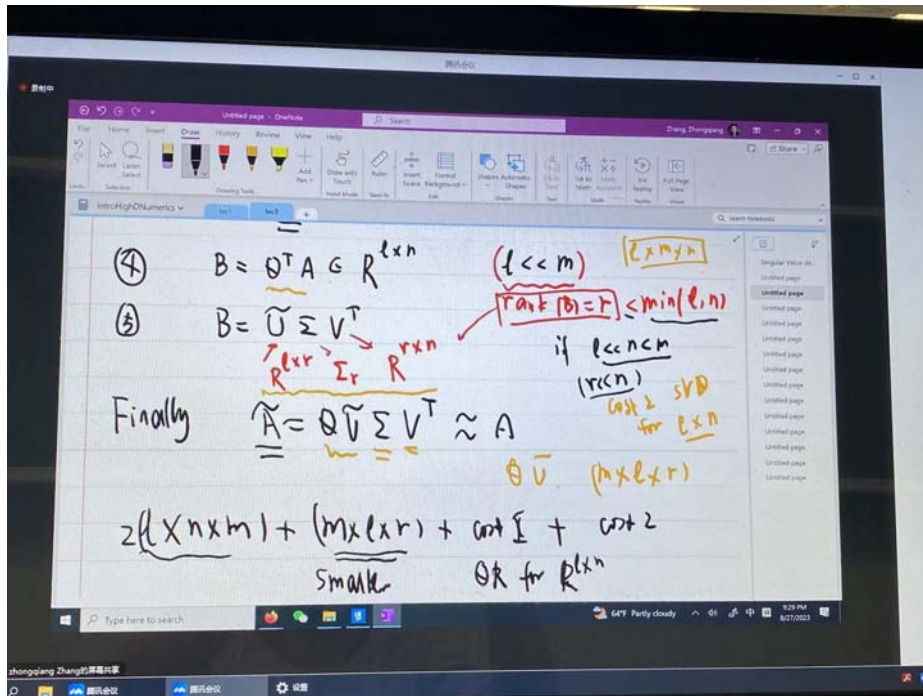 腾讯会议
录制中
Untitled page - OneNote
Search
Zhang, Zhongqiang
File Home Insert Draw History Review View Help
Share
Undo
Select
Lasso Select
Add Pen
Draw with Touch
Ruler
Insert Space
Format Background
Shapes
Automatic Shapes
Ink to Text
Ink to Math
Ink Replay
Full Page View
Selection
Drawing Tools
Input Mode
Edit
Shapes
IntroHighDNumerics
lec1
lec3
Search Notebooks
④ B = Q^T A ∈ R^{l×n} (l << m) l×m×n
⑤ B = Ũ Σ V^T rank(B)=r ≤ min(l,n)
R^{l×r} Σ_r R^{r×n} if l<<n<m
(r<<n)
cost 2 SVD
for l×n
Finally Ã = QŨ Σ V^T ≈ A
QŨ (m×l×r)
2(l×n×m) + (m×l×r) + cost I + cost 2
smaller QR for R^{l×n}
Singular Value de...
Untitled page
Untitled page
Untitled page
Untitled page
Untitled page
Untitled page
Untitled page
Untitled page
Untitled page
Untitled page
Untitled page
Untitled page
Untitled page
Untitled page
Type here to search
64°F Partly cloudy
中
9:29 PM
8/27/2023
zhongqiang Zhang的屏幕共享
腾讯会议
腾讯会议
设置